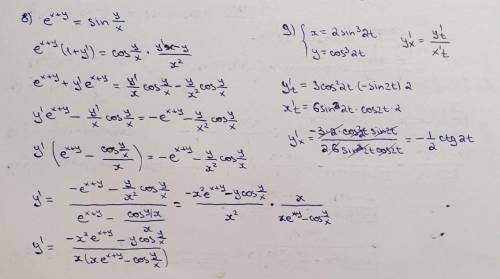 8) e^{x+y} = sin y/x
e^{x+y} (1+y') = cos y/x · (y'x - y)/x²
e^{x+y} + y'e^{x+y} = y'/x cos y/x - y/x² cos y/x
y'e^{x+y} - y'/x cos y/x = -e^{x+y} - y/x² cos y/x
y' (e^{x+y} - (cos y/x)/x) = -e^{x+y} - y/x² cos y/x
y' = (-e^{x+y} - y/x² cos y/x)/(e^{x+y} - (cos y/x)/x) = (-x²e^{x+y} - y cos y/x)/x² · x/(xe^{x+y} - cos y/x)
y' = (-x²e^{x+y} - y cos y/x)/(x(xe^{x+y} - cos y/x))
9) { x = 2sin³2t
y = cos³2t
y'ₓ = y'ₜ/x'ₜ
y'ₜ = 3cos²2t · (-sin2t) 2
x'ₜ = 6sin²2t · cos2t · 2
y'ₓ = (-3·2·cos²2t sin2t)/(2·6sin²2t cos2t) = -1/2 ctg2t